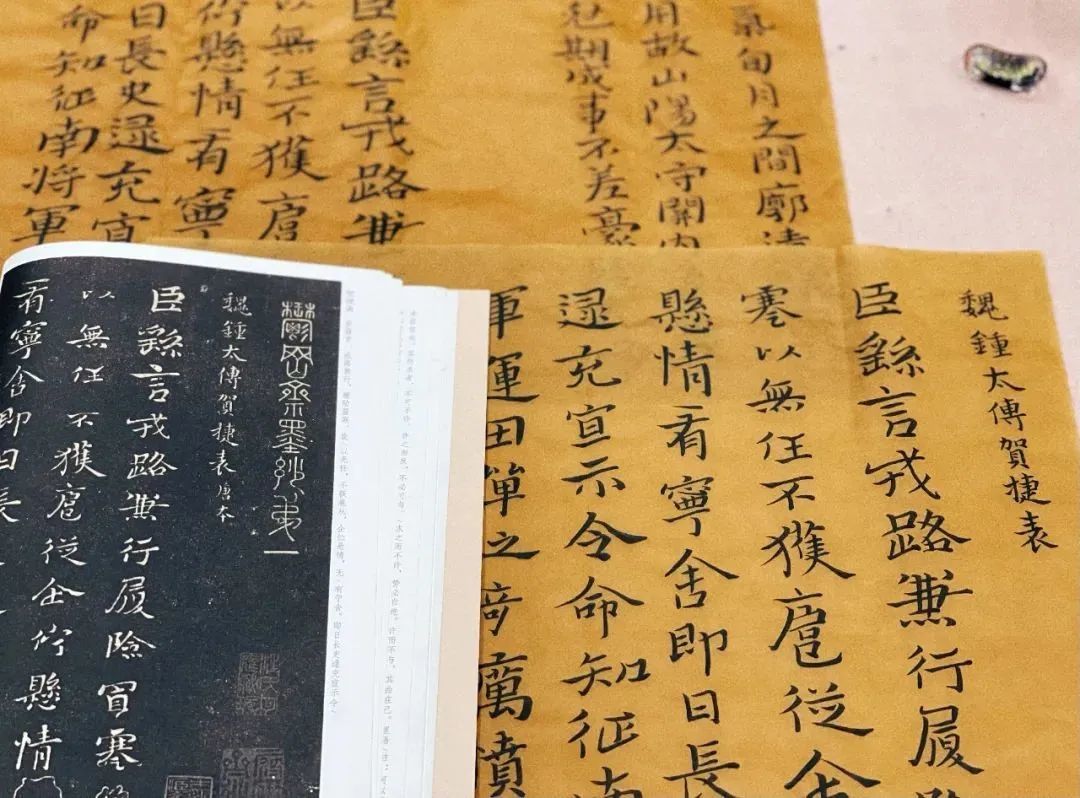 氣旬月之間廓清
用故山陽太守關內
尅期成事不差豪
臣繇言戎路兼
以無任不獲扈
佇懸情有寧
日長史逯充宣
命知征南将軍
魏鍾太傅賀捷表
臣繇言戎路兼行履
寒以無任不獲扈從企
懸情有寧舍即日長
逯充宣示令命知征南
軍運田單之奇厲憤
鬱岡齋墨妙第一
魏鍾太傅賀捷表唐本
臣繇言戎路兼行履險冒寒
以無任不獲扈從企佇懸情
有寧舍即日長